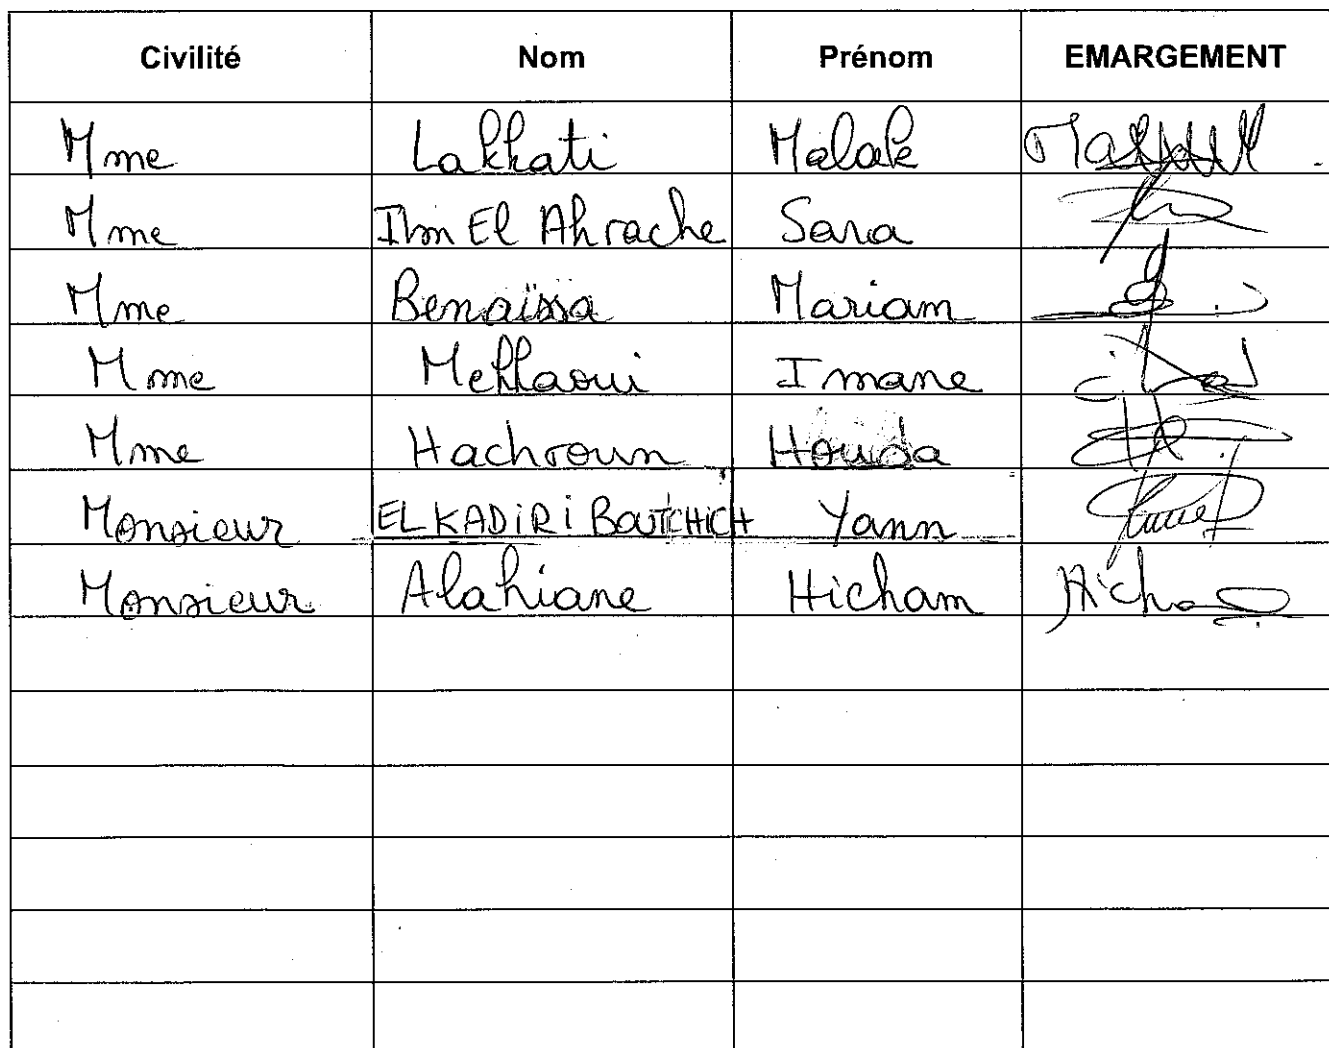 Civilité Nom Prénom EMARGEMENT
Mme Lakhati Malak
Mme Ilm El Ahrache Sara
Mme Benaïssa Mariam
Mme Mehlaoui Imane
Mme Hachroun Houda
Monsieur EL KADIRI BOUTCHICH Yann
Monsieur Alahiane Hicham